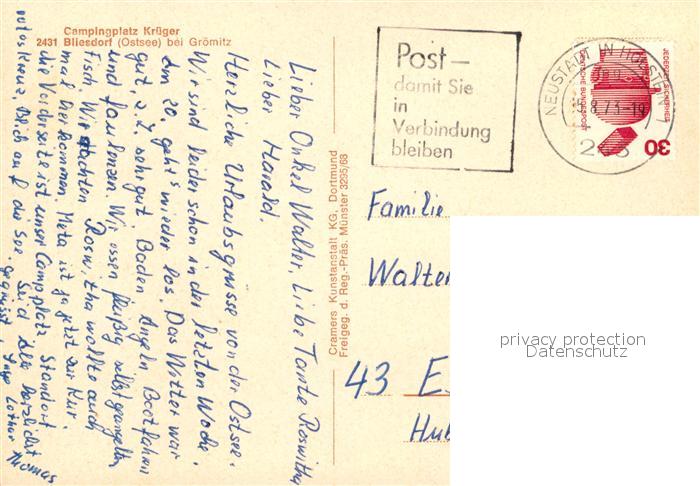 Campingplatz Krüger
2431 Bliesdorf (Ostsee) bei Grömitz
Lieber Onkel Walter, Liebe Tante Roswitha
Lieber Harald.
Herzliche Urlaubsgrüsse von der Ostsee.
Wir sind leider schon in der letzten Woche,
am 20. geht's wieder los. Das Wetter war
gut, z.T. sehr gut. Baden Angeln Bootfahren
und faulenzen. Wir essen fleißig selbstgeangelten
Fisch. Wir dachten Roswitha wollte auch
mal herkommen. Meta ist ja jetzt zur Kur.
die Vorderseite ist unser Campplatz Standort
rotes Kreuz, Blick auf die See. Seid alle herzlichst
gegrüsst, Inge Lothar Thomas
Cramers Kunstanstalt KG, Dortmund
Freigeg. d. Reg.-Präs. Münster 3295/68
Post –
damit Sie
in
Verbindung
bleiben
NEUSTADT IN HOLSTEIN 1
8.73-19
JEDERZEIT SICHERHEIT
DEUTSCHE BUNDESPOST
30
Familie
Walter
43 E
Hu
privacy protection
Datenschutz